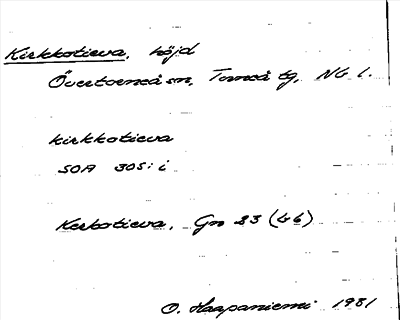 Kirkkotieva, höjd
Övertorneå sn, Torneå tg, Nb l.
kirkkotieva
SOA 305: i
Kerkotieva, Gn 23 (46)
O. Haapaniemi 1981